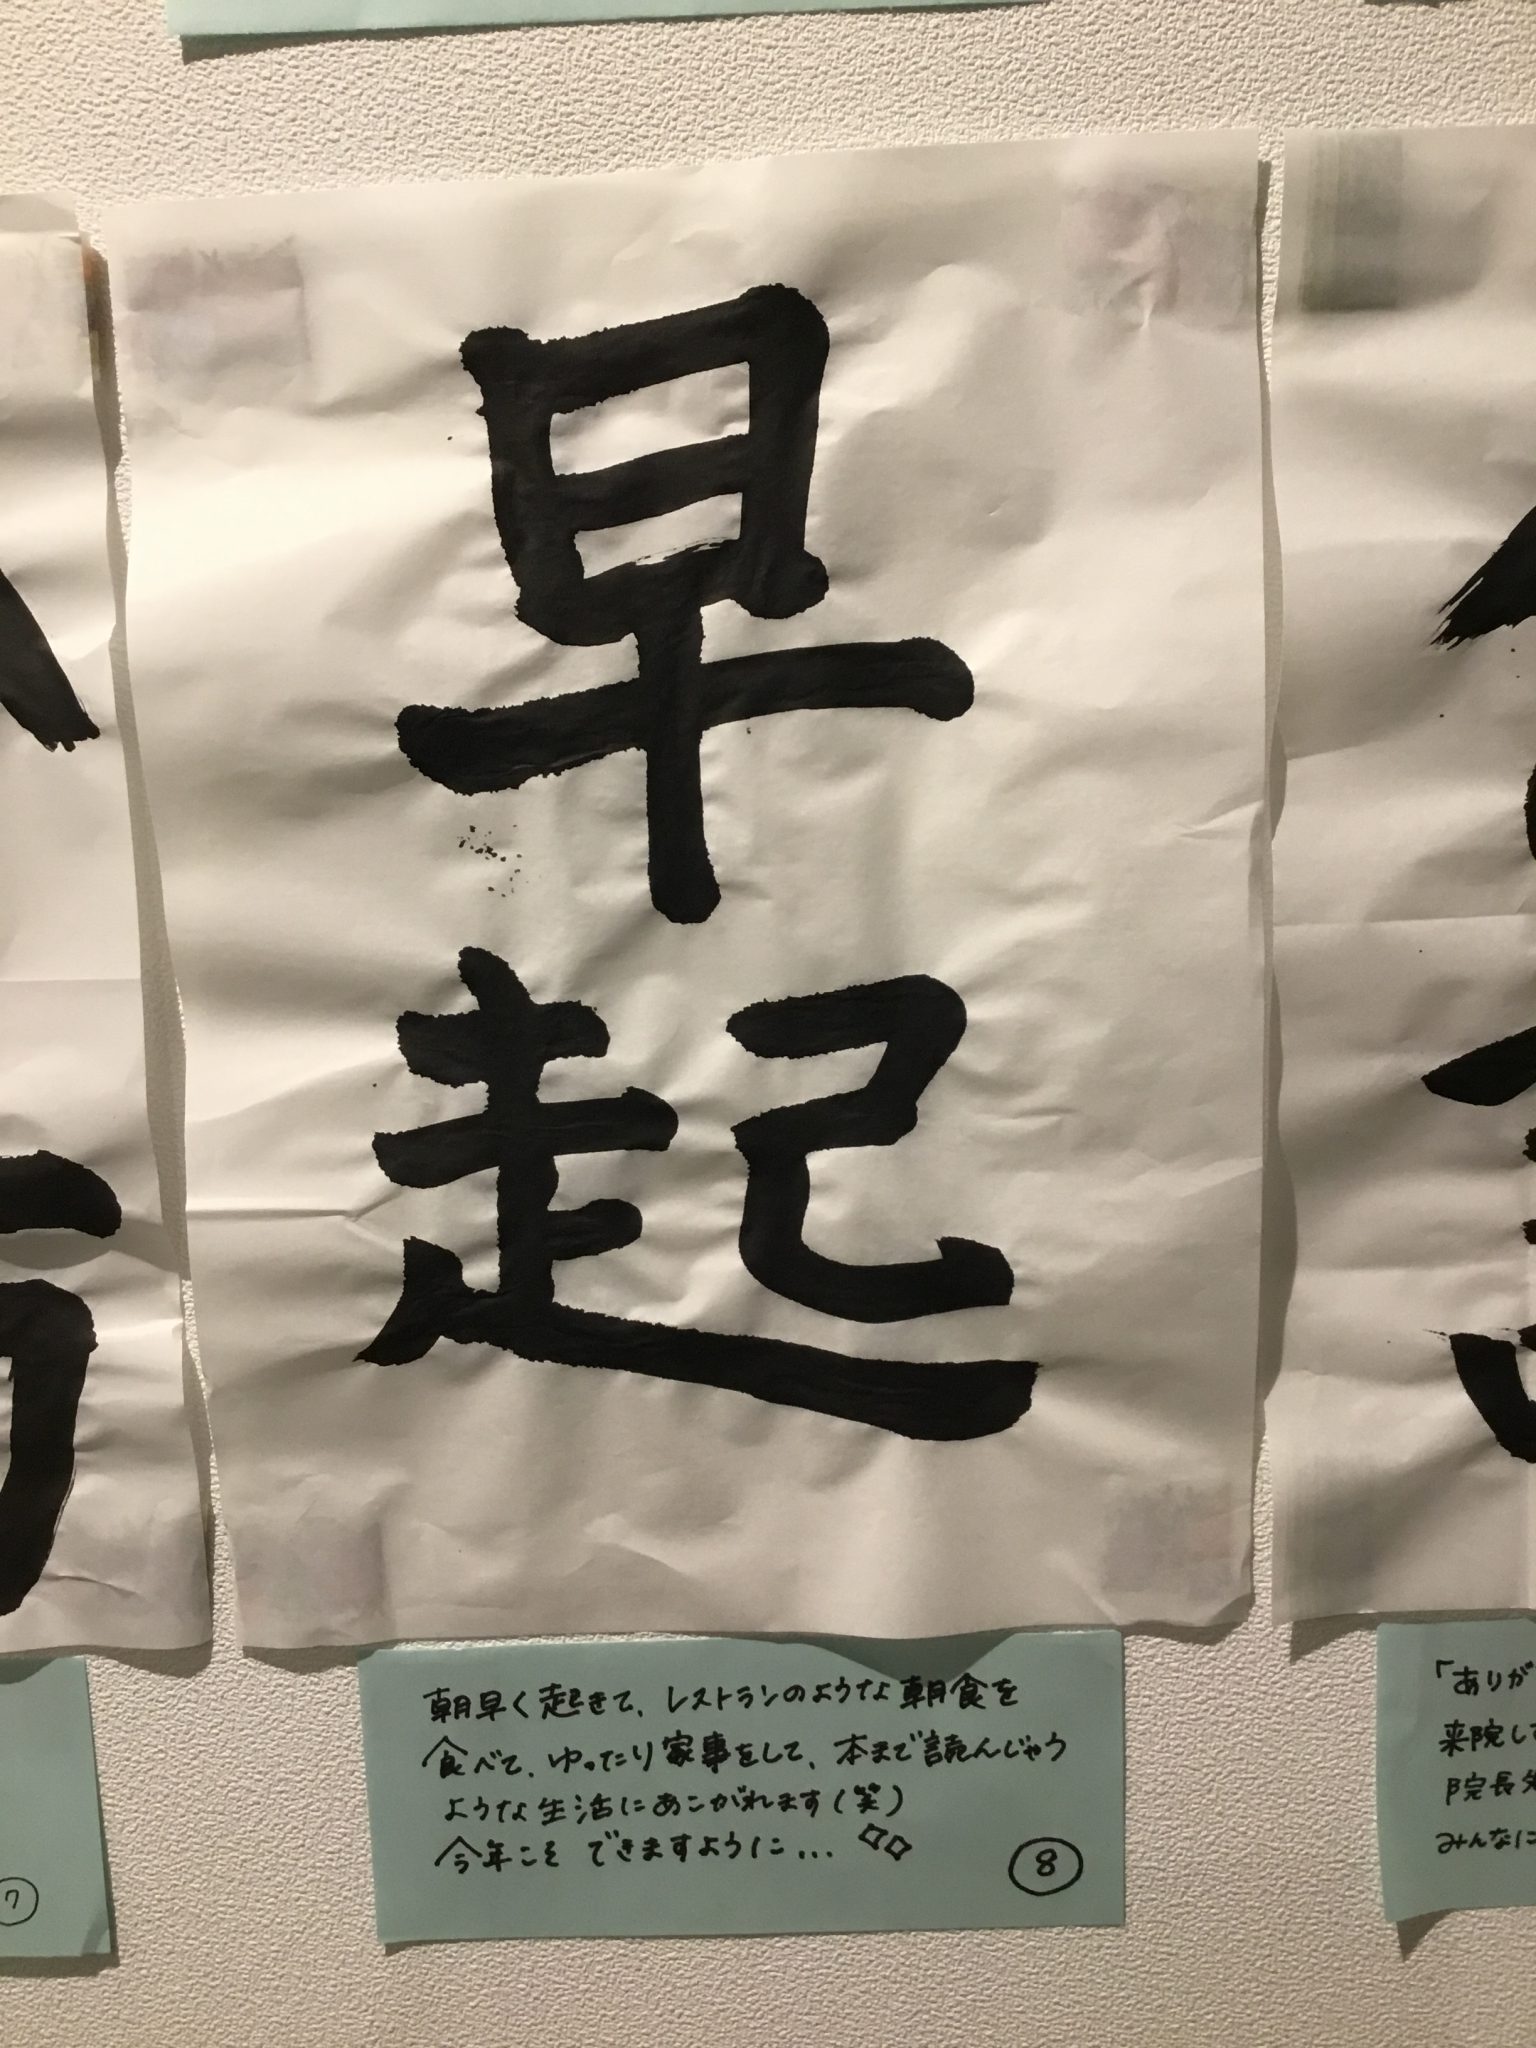 早起
朝早く起きて、レストランのような朝食を
食べて、ゆったり家事をして、本まで読んじゃう
ような生活にあこがれます(笑)
今年こそできますように...
⑧
⑦
「ありが
来院し
院長先
みんなに